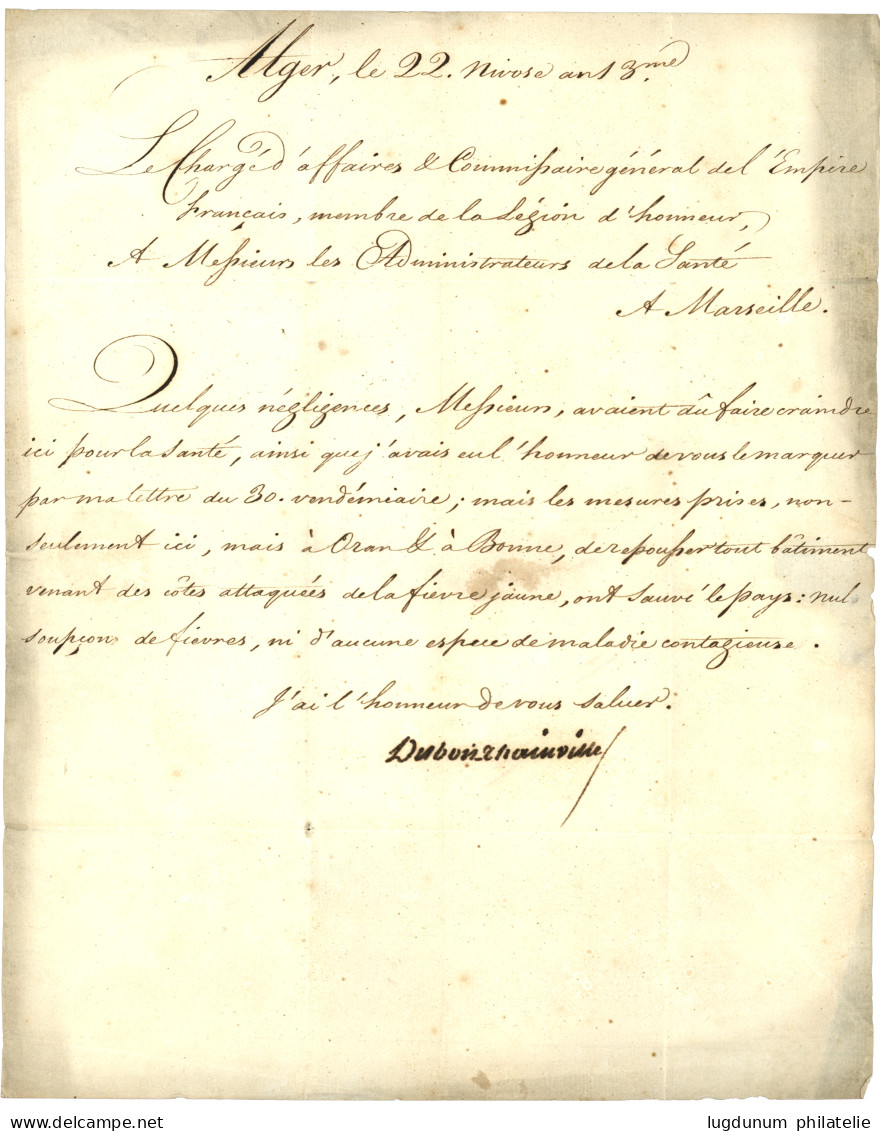 Alger, le 22. nivose an 13.me
Le Chargé d'affaires & Commissaire général de l'Empire
français, membre de la Légion d'honneur,
A Messieurs les Administrateurs de la Santé
A Marseille.
Quelques négligences, Messieurs, avaient dû faire craindre
ici pour la santé, ainsi que j'avais eu l'honneur de vous le marquer
par ma lettre du 30. vendémiaire; mais les mesures prises, non-
seulement ici, mais à Oran & à Bonne, de repousser tout bâtiment
venant des côtes attaquées de la fievre jaune, ont sauvé le pays: nul
soupçon de fievres, ni d'aucune espece de maladie contagieuse.
J'ai l'honneur de vous saluer.
Dubois Thainville
lugdunum philatelie